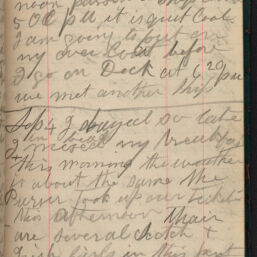 noon
5 O.C. P.M. it is quit Cool
I am going to put on
my over Coat before
I go on Deck at 6 20 pm
we met another Ship
Sep 4 I stayed so late
I missed my breakfast
this morning the weather
is about the same the
Purser took up our tickets
this afternoon thair
are several Scotch &
Irish Girls in this part